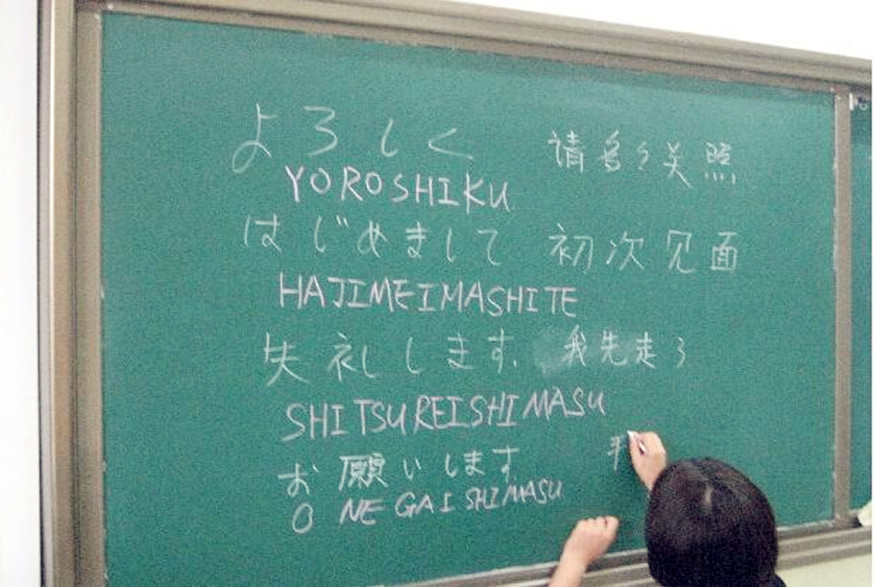 よろしく 请多々关照
YOROSHIKU
はじめまして 初次见面
HAJIMEIMASHITE
失礼します. 我先走了
SHITSUREISHIMASU
お願いします
O NEGAISHIMASU